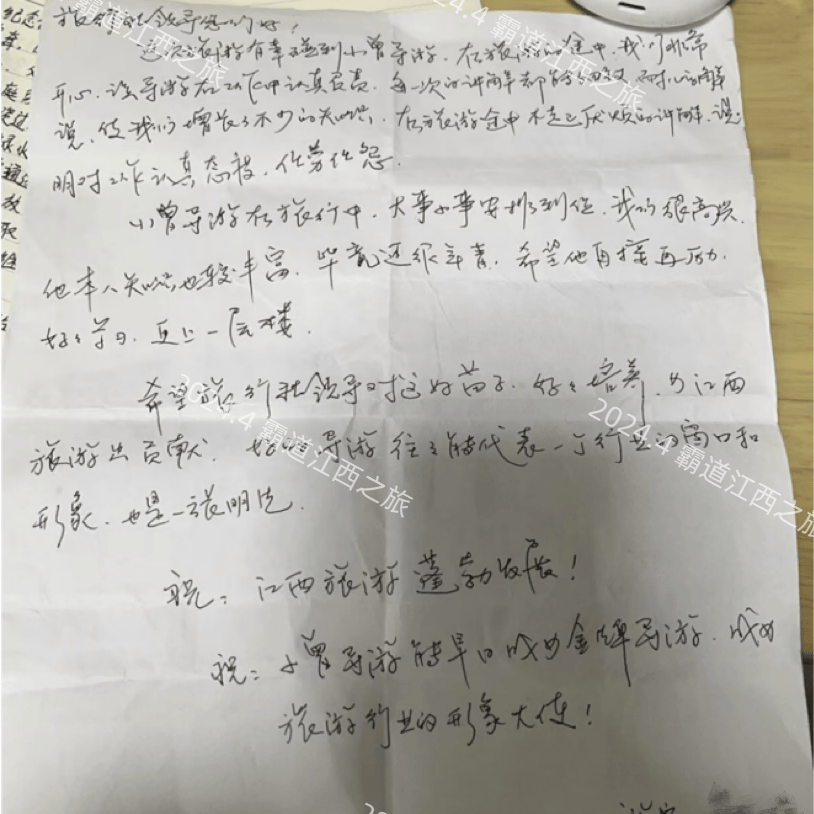 旅行社领导您们好！
这次旅游有幸碰到小曾导游，在旅游的途中，我们非常
开心，该导游在工作中认真负责，每一次的讲解都能，解
说，使我们增长了不少的知识，在旅游途中不起厌烦的讲解，说
明对工作认真态度，任劳任怨。
小曾导游在旅行中，大事小事安排到位，我们很高兴，
他本人知识也较丰富，毕竟还很年青，希望他再接再历，
好好学习，更上一层楼。
希望旅行社领导对这好苗子，好好培养，为江西
旅游出贡献，好的导游往往能代表一个行业的窗口和
形象，也是一张明片。
祝：江西旅游蓬勃发展！
祝：小曾导游能早日成为金牌导游，成为
旅游行业的形象大使！
2024.4 霸道江西之旅
2024.4 霸道江西之旅
2024.4 霸道江西之旅